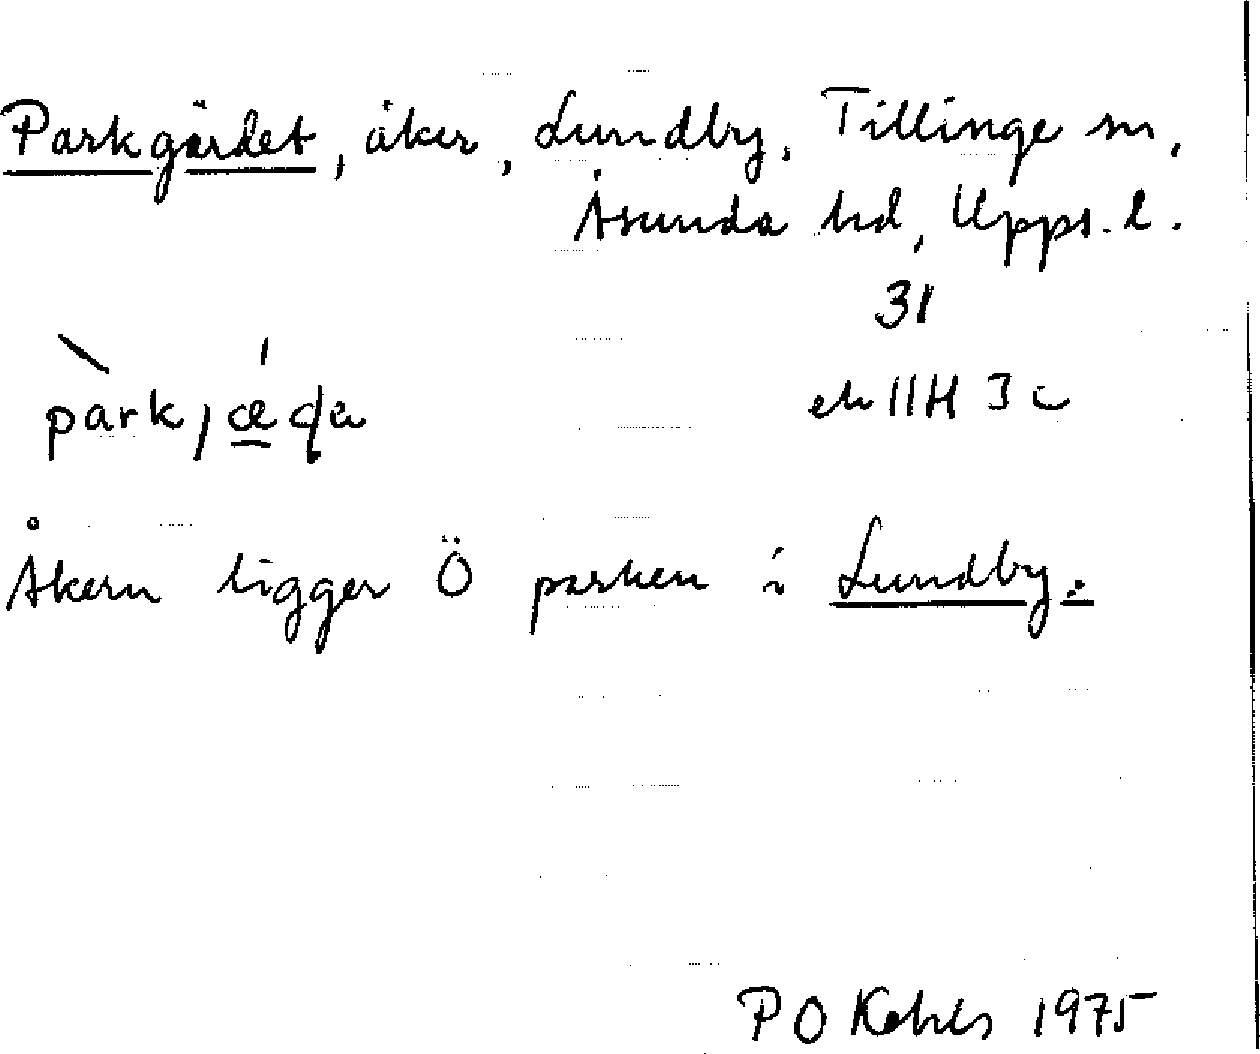 Parkgärdet, åker, Lundby, Tillinge sn,
Åsunda hd, Upps. l.
31
ek 11H 3 c
park, æ
Åkern ligger Ö parken i Lundby.
P O 1975